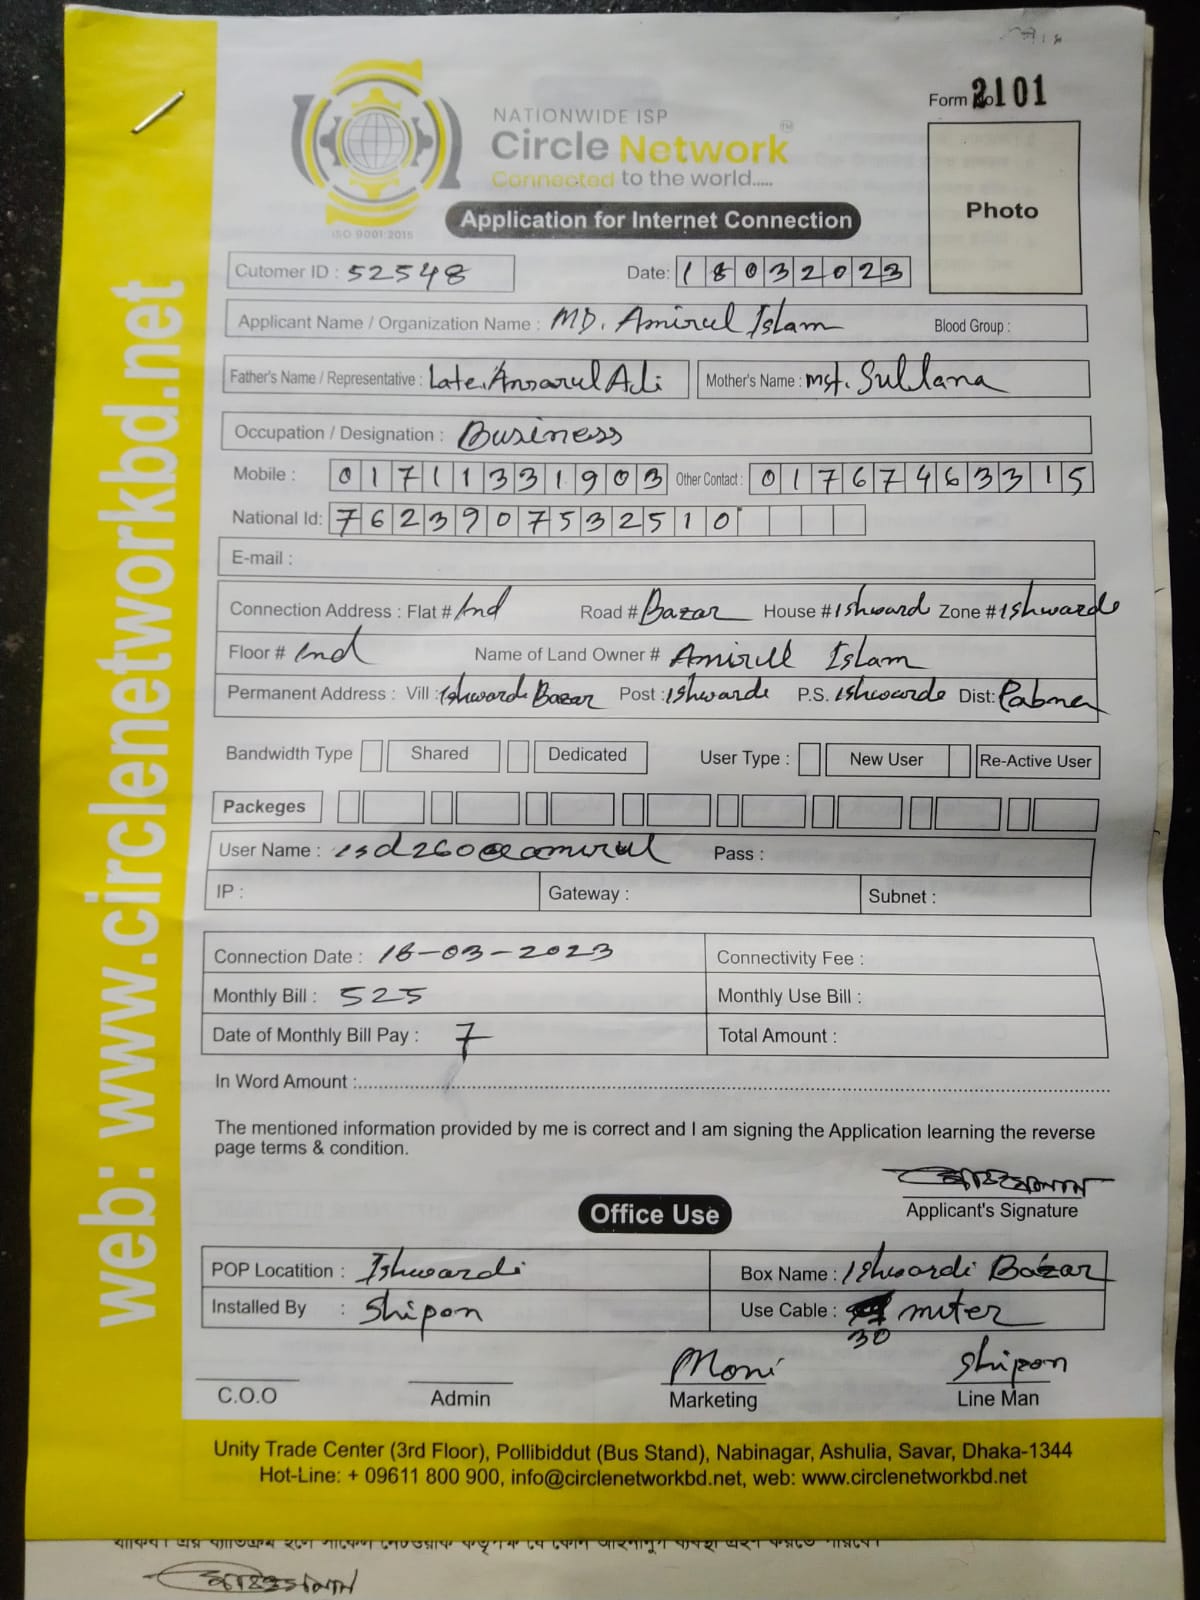 Form No 2101
NATIONWIDE ISP
Circle Network TM
Connected to the world.....
ISO 9001:2015
Application for Internet Connection
Photo
Cutomer ID : 52548
Date: 18032023
Applicant Name / Organization Name : MD. Amirul Islam Blood Group :
Father's Name / Representative : Late. Ansarul Ali Mother's Name : Mst. Sultana
Occupation / Designation : Business
Mobile : 01711331903 Other Contact : 01767463315
National Id: 7623907532510
E-mail :
Connection Address : Flat # Ind Road # Bazar House # Ishward Zone # Ishwarde
Floor # Ind Name of Land Owner # Amirul Islam
Permanent Address : Vill : Ishwardi Bazar Post : Ishwarde P.S. Ishwarde Dist: Pabna
Bandwidth Type Shared Dedicated User Type : New User Re-Active User
Packeges
User Name : Pass :
IP : Gateway : Subnet :
Connection Date : 18-03-2023 Connectivity Fee :
Monthly Bill : 525 Monthly Use Bill :
Date of Monthly Bill Pay : 7 Total Amount :
In Word Amount :
The mentioned information provided by me is correct and I am signing the Application learning the reverse
page terms & condition.
Applicant's Signature
Office Use
POP Locatition : Ishwardi Box Name : Ishwardi Bazar
Installed By : Shipon Use Cable : 30 miter
Moni Shipon
C.O.O Admin Marketing Line Man
Unity Trade Center (3rd Floor), Pollibiddut (Bus Stand), Nabinagar, Ashulia, Savar, Dhaka-1344
Hot-Line: + 09611 800 900, info@circlenetworkbd.net, web: www.circlenetworkbd.net
web: www.circlenetworkbd.net